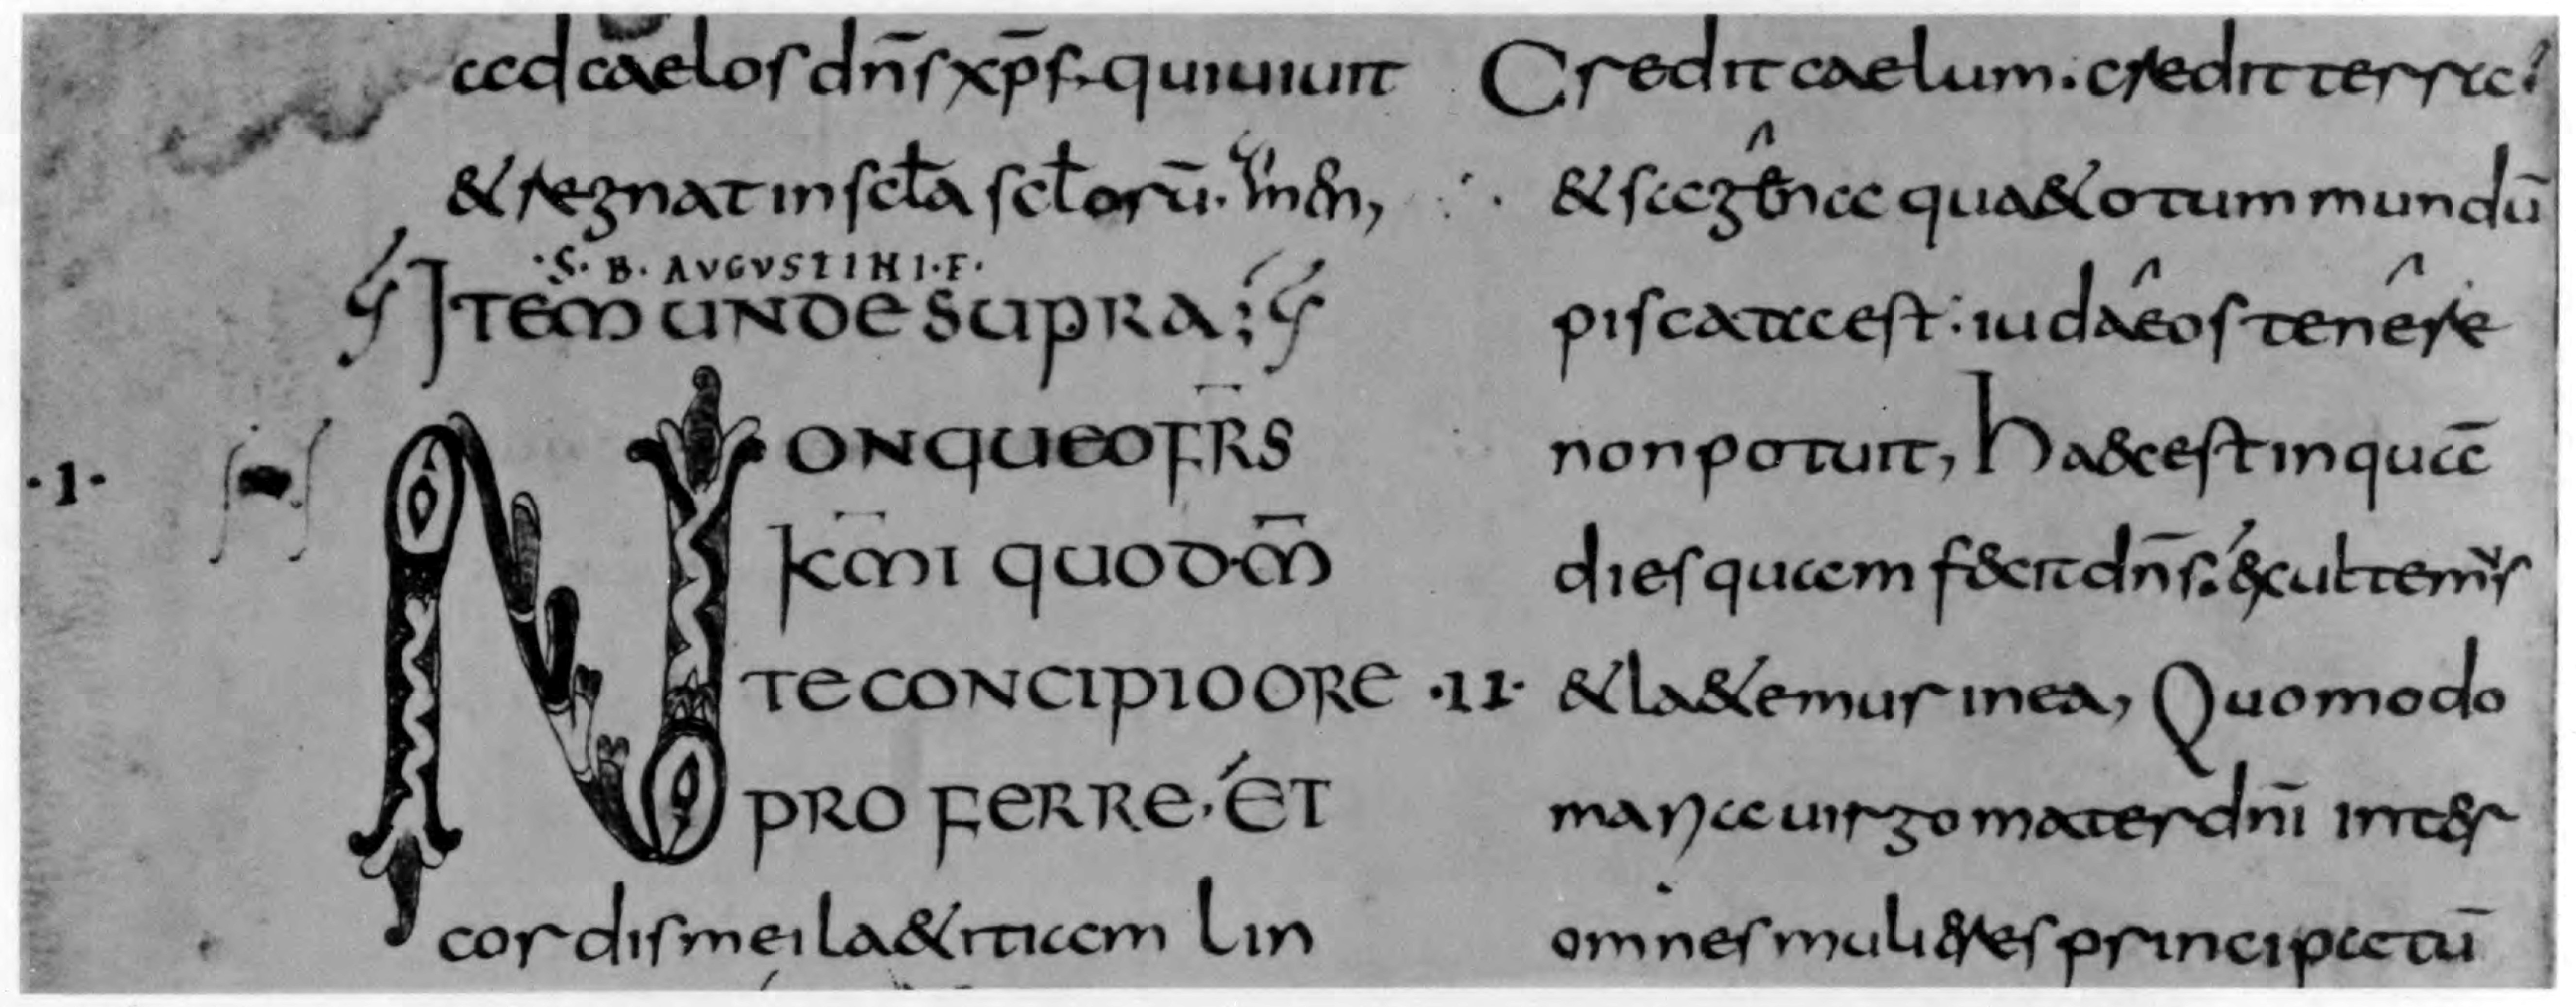 ad caelos dn̄s xp̄s. qui uiuit
& regnat in scła scłorū. am̄n,
·S· B· AVGVSTINI·F·
ITEM UNDE SUPRA;
·I· NON QUEO FR̄S
Km̄I QUOD M̄
TE CONCIPIO ORE
PROFERRE. ET
cordis mei la&itiam lin
Credit caelum. credit terra.
& sagena qua& totum mundū
piscata est: iudaeos tenere
non potuit, Haec est inquā
dies quam fecit dn̄s. exultemus
·II· & la&emur in ea, Quomodo
maria uirgo mater dn̄i inter
omnes mulieres principatū